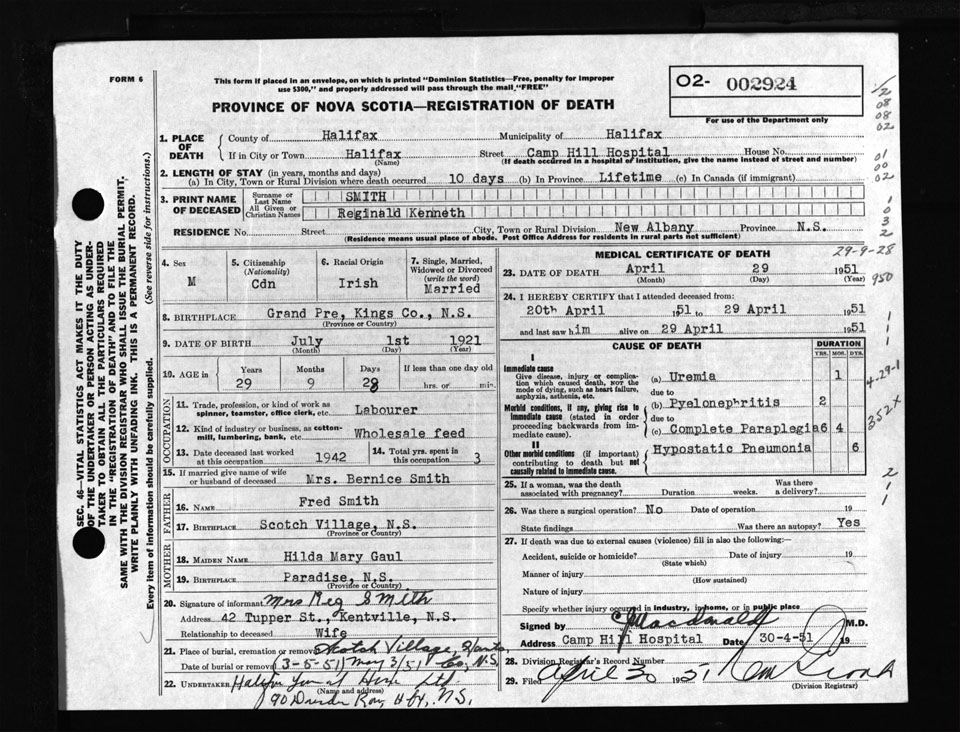 FORM 6
This form if placed in an envelope, on which is printed "Dominion Statistics—Free, penalty for improper
use $300," and properly addressed will pass through the mail "FREE"
O2- 002924
For use of the Department only
PROVINCE OF NOVA SCOTIA—REGISTRATION OF DEATH
1. PLACE OF DEATH
County of Halifax Municipality of Halifax
If in City or Town Halifax Street Camp Hill Hospital House No.
(Name) (If death occurred in a hospital or institution, give the name instead of street and number)
2. LENGTH OF STAY (in years, months and days)
(a) In City, Town or Rural Division where death occurred 10 days (b) In Province Lifetime (c) In Canada (if immigrant)
3. PRINT NAME OF DECEASED
Surname or Last Name SMITH
All Given or Christian Names Reginald Kenneth
RESIDENCE No. Street City, Town or Rural Division New Albany Province N.S.
(Residence means usual place of abode. Post Office Address for residents in rural parts not sufficient)
4. Sex
M
5. Citizenship
(Nationality)
Cdn
6. Racial Origin
Irish
7. Single, Married,
Widowed or Divorced
(write the word)
Married
8. BIRTHPLACE Grand Pre, Kings Co., N.S.
(Province or Country)
9. DATE OF BIRTH July 1st 1921
(Month) (Day) (Year)
10. AGE in
Years Months Days If less than one day old
29 9 28 hrs. or min.
OCCUPATION
11. Trade, profession, or kind of work as
spinner, teamster, office clerk, etc. Labourer
12. Kind of industry or business, as cotton-
mill, lumbering, bank, etc. Wholesale feed
13. Date deceased last worked
at this occupation 1942
14. Total yrs. spent in
this occupation 3
15. If married give name of wife
or husband of deceased Mrs. Bernice Smith
FATHER
16. NAME Fred Smith
17. BIRTHPLACE Scotch Village, N.S.
(Province or Country)
MOTHER
18. MAIDEN NAME Hilda Mary Gaul
19. BIRTHPLACE Paradise, N.S.
(Province or Country)
20. Signature of informant Mrs Reg Smith
Address 42 Tupper St., Kentville, N.S.
Relationship to deceased Wife
21. Place of burial, cremation or removal Scotch Village, Hants
Date of burial or removal (3-5-51) May 3/51 Co, N.S.
22. UNDERTAKER
(Name and address)
Hfx, N.S.
MEDICAL CERTIFICATE OF DEATH
29-9-28
23. DATE OF DEATH April 29 1951
(Month) (Day) (Year)
950
24. I HEREBY CERTIFY that I attended deceased from:
20th April 1951 to 29 April 1951
and last saw him alive on 29 April 1951
CAUSE OF DEATH
DURATION
YRS. MOS. DYS.
I
Immediate cause
Give disease, injury or complica-
tion which caused death, NOT the
mode of dying, such as heart failure,
asphyxia, asthenia, etc.
(a) Uremia 1
due to
Morbid conditions, if any, giving rise to
immediate cause (stated in order
proceeding backwards from im-
mediate cause).
(b) Pyelonephritis 2
due to
(c) Complete Paraplegia 6 4
II
Other morbid conditions (if important)
contributing to death but not
causally related to immediate cause.
Hypostatic Pneumonia 6
25. If a woman, was the death
associated with pregnancy? Duration weeks. Was there
a delivery?
26. Was there a surgical operation? No Date of operation 19
State findings Was there an autopsy? Yes
27. If death was due to external causes (violence) fill in also the following:—
Accident, suicide or homicide? Date of injury 19
(State which)
Manner of injury
(How sustained)
Nature of injury
Specify whether injury occurred in industry, in home, or in public place
Signed by Macdonald M.D.
Address Camp Hill Hospital Date 30-4-51 19
28. Division Registrar's Record Number
29. Filed April 30 1951
(Division Registrar)
SEC. 46—VITAL STATISTICS ACT MAKES IT THE DUTY
OF THE UNDERTAKER OR PERSON ACTING AS UNDER-
TAKER TO OBTAIN ALL THE PARTICULARS REQUIRED
IN THE "REGISTRATION OF DEATH" AND TO FILE THE
SAME WITH THE DIVISION REGISTRAR WHO SHALL ISSUE THE BURIAL PERMIT.
WRITE PLAINLY WITH UNFADING INK. THIS IS A PERMANENT RECORD.
Every item of information should be carefully supplied. (See reverse side for instructions.)
08
08
02
01
00
02
1
0
3
2
1
1
1
4-29-1
352X
2
1
1